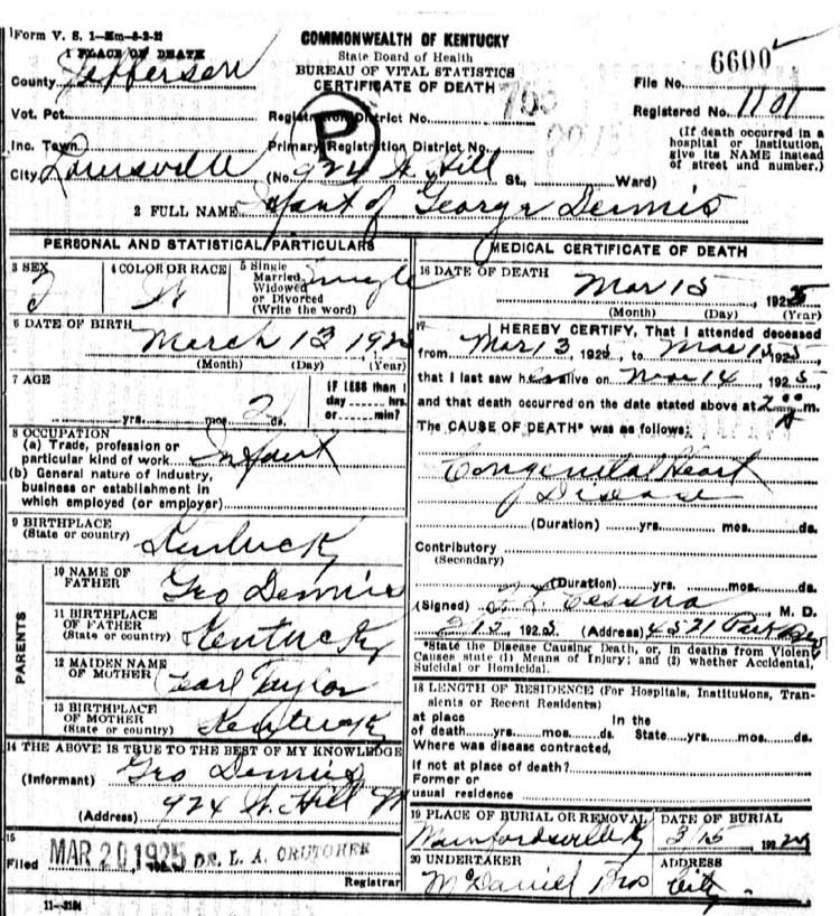 Form V. S. 1—
1 PLACE OF DEATH
COMMONWEALTH OF KENTUCKY
State Board of Health
BUREAU OF VITAL STATISTICS
CERTIFICATE OF DEATH
6600
File No.
County Jefferson
Registered No. 1101
Vot. Pct.
Registration District No. 765
P
(If death occurred in a hospital or institution, give its NAME instead of street and number.)
Inc. Town
Primary Registration District No.
City Louisville (No. 924 W. Hill St., Ward)
2 FULL NAME Infant of George Dennis
PERSONAL AND STATISTICAL PARTICULARS
3 SEX
F
4 COLOR OR RACE
W
5 Single
Married,
Widowed
or Divorced
(Write the word)
Single
6 DATE OF BIRTH
March 13 1925
(Month) (Day) (Year)
7 AGE
yrs. mos. 2 ds.
IF LESS than 1
day hrs.
or min?
8 OCCUPATION
(a) Trade, profession or
particular kind of work Infant
(b) General nature of industry,
business or establishment in
which employed (or employer)
9 BIRTHPLACE
(State or country) Kentucky
PARENTS
10 NAME OF
FATHER Geo Dennis
11 BIRTHPLACE
OF FATHER
(State or country) Kentucky
12 MAIDEN NAME
OF MOTHER Taylor
13 BIRTHPLACE
OF MOTHER
(State or country) Kentucky
14 THE ABOVE IS TRUE TO THE BEST OF MY KNOWLEDGE
(Informant) Geo Dennis
(Address) 924 W. Hill
15
Filed MAR 20 1925 DR. L. A. CRUTCHER
Registrar
MEDICAL CERTIFICATE OF DEATH
16 DATE OF DEATH
Mar 15, 1925
(Month) (Day) (Year)
17 I HEREBY CERTIFY, That I attended deceased
from Mar 13, 1925, to Mar 15 1925,
that I last saw her alive on Mar 14, 1925,
and that death occurred on the date stated above at 2 00 A m.
The CAUSE OF DEATH* was as follows:
Congenital Heart
Disease
(Duration) yrs. mos. ds.
Contributory
(Secondary)
(Duration) yrs. mos. ds.
(Signed) Cessna, M. D.
3/15, 1925. (Address) 4521 Park
*State the Disease Causing Death, or, in deaths from Violent
Causes state (1) Means of Injury; and (2) whether Accidental,
Suicidal or Homicidal.
18 LENGTH OF RESIDENCE (For Hospitals, Institutions, Tran-
sients or Recent Residents)
at place In the
of death yrs. mos. ds. State yrs. mos. ds.
Where was disease contracted,
if not at place of death?
Former or
usual residence
19 PLACE OF BURIAL OR REMOVAL
Munfordsville Ky
DATE OF BURIAL
3/15 192
20 UNDERTAKER
McDaniel Bros
ADDRESS
City
11—3184